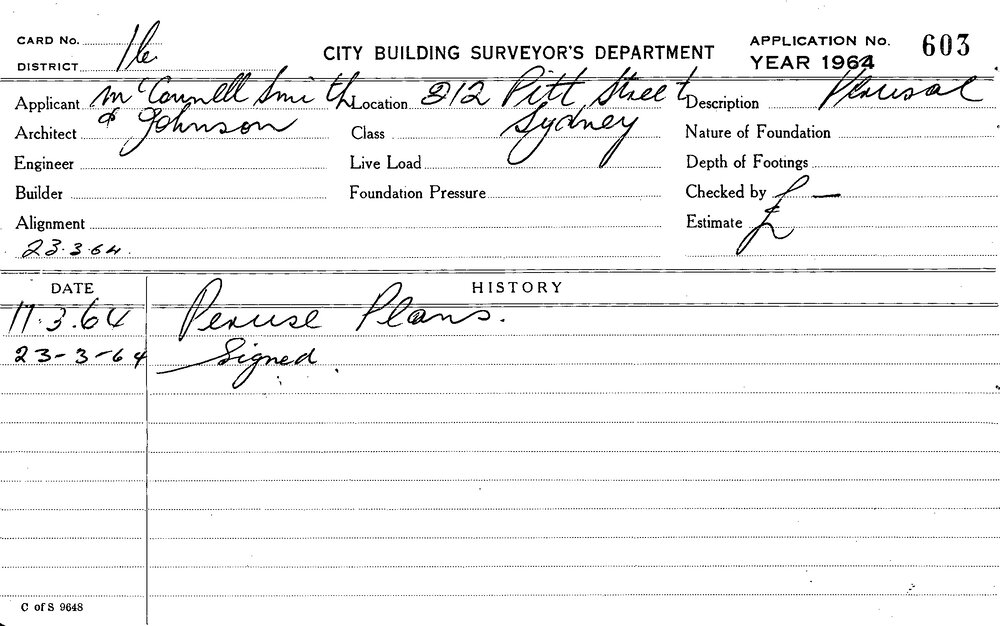 CARD No.
DISTRICT 16
CITY BUILDING SURVEYOR'S DEPARTMENT
APPLICATION No. 603
YEAR 1964
Applicant McConnell Smith Location 212 Pitt Street Description Perusal
Architect & Johnson Class Sydney Nature of Foundation
Engineer Live Load Depth of Footings
Builder Foundation Pressure Checked by
Alignment Estimate £ —
23.3.64.
DATE HISTORY
17.3.64 Peruse Plans.
23-3-64 Signed.
C of S 9648